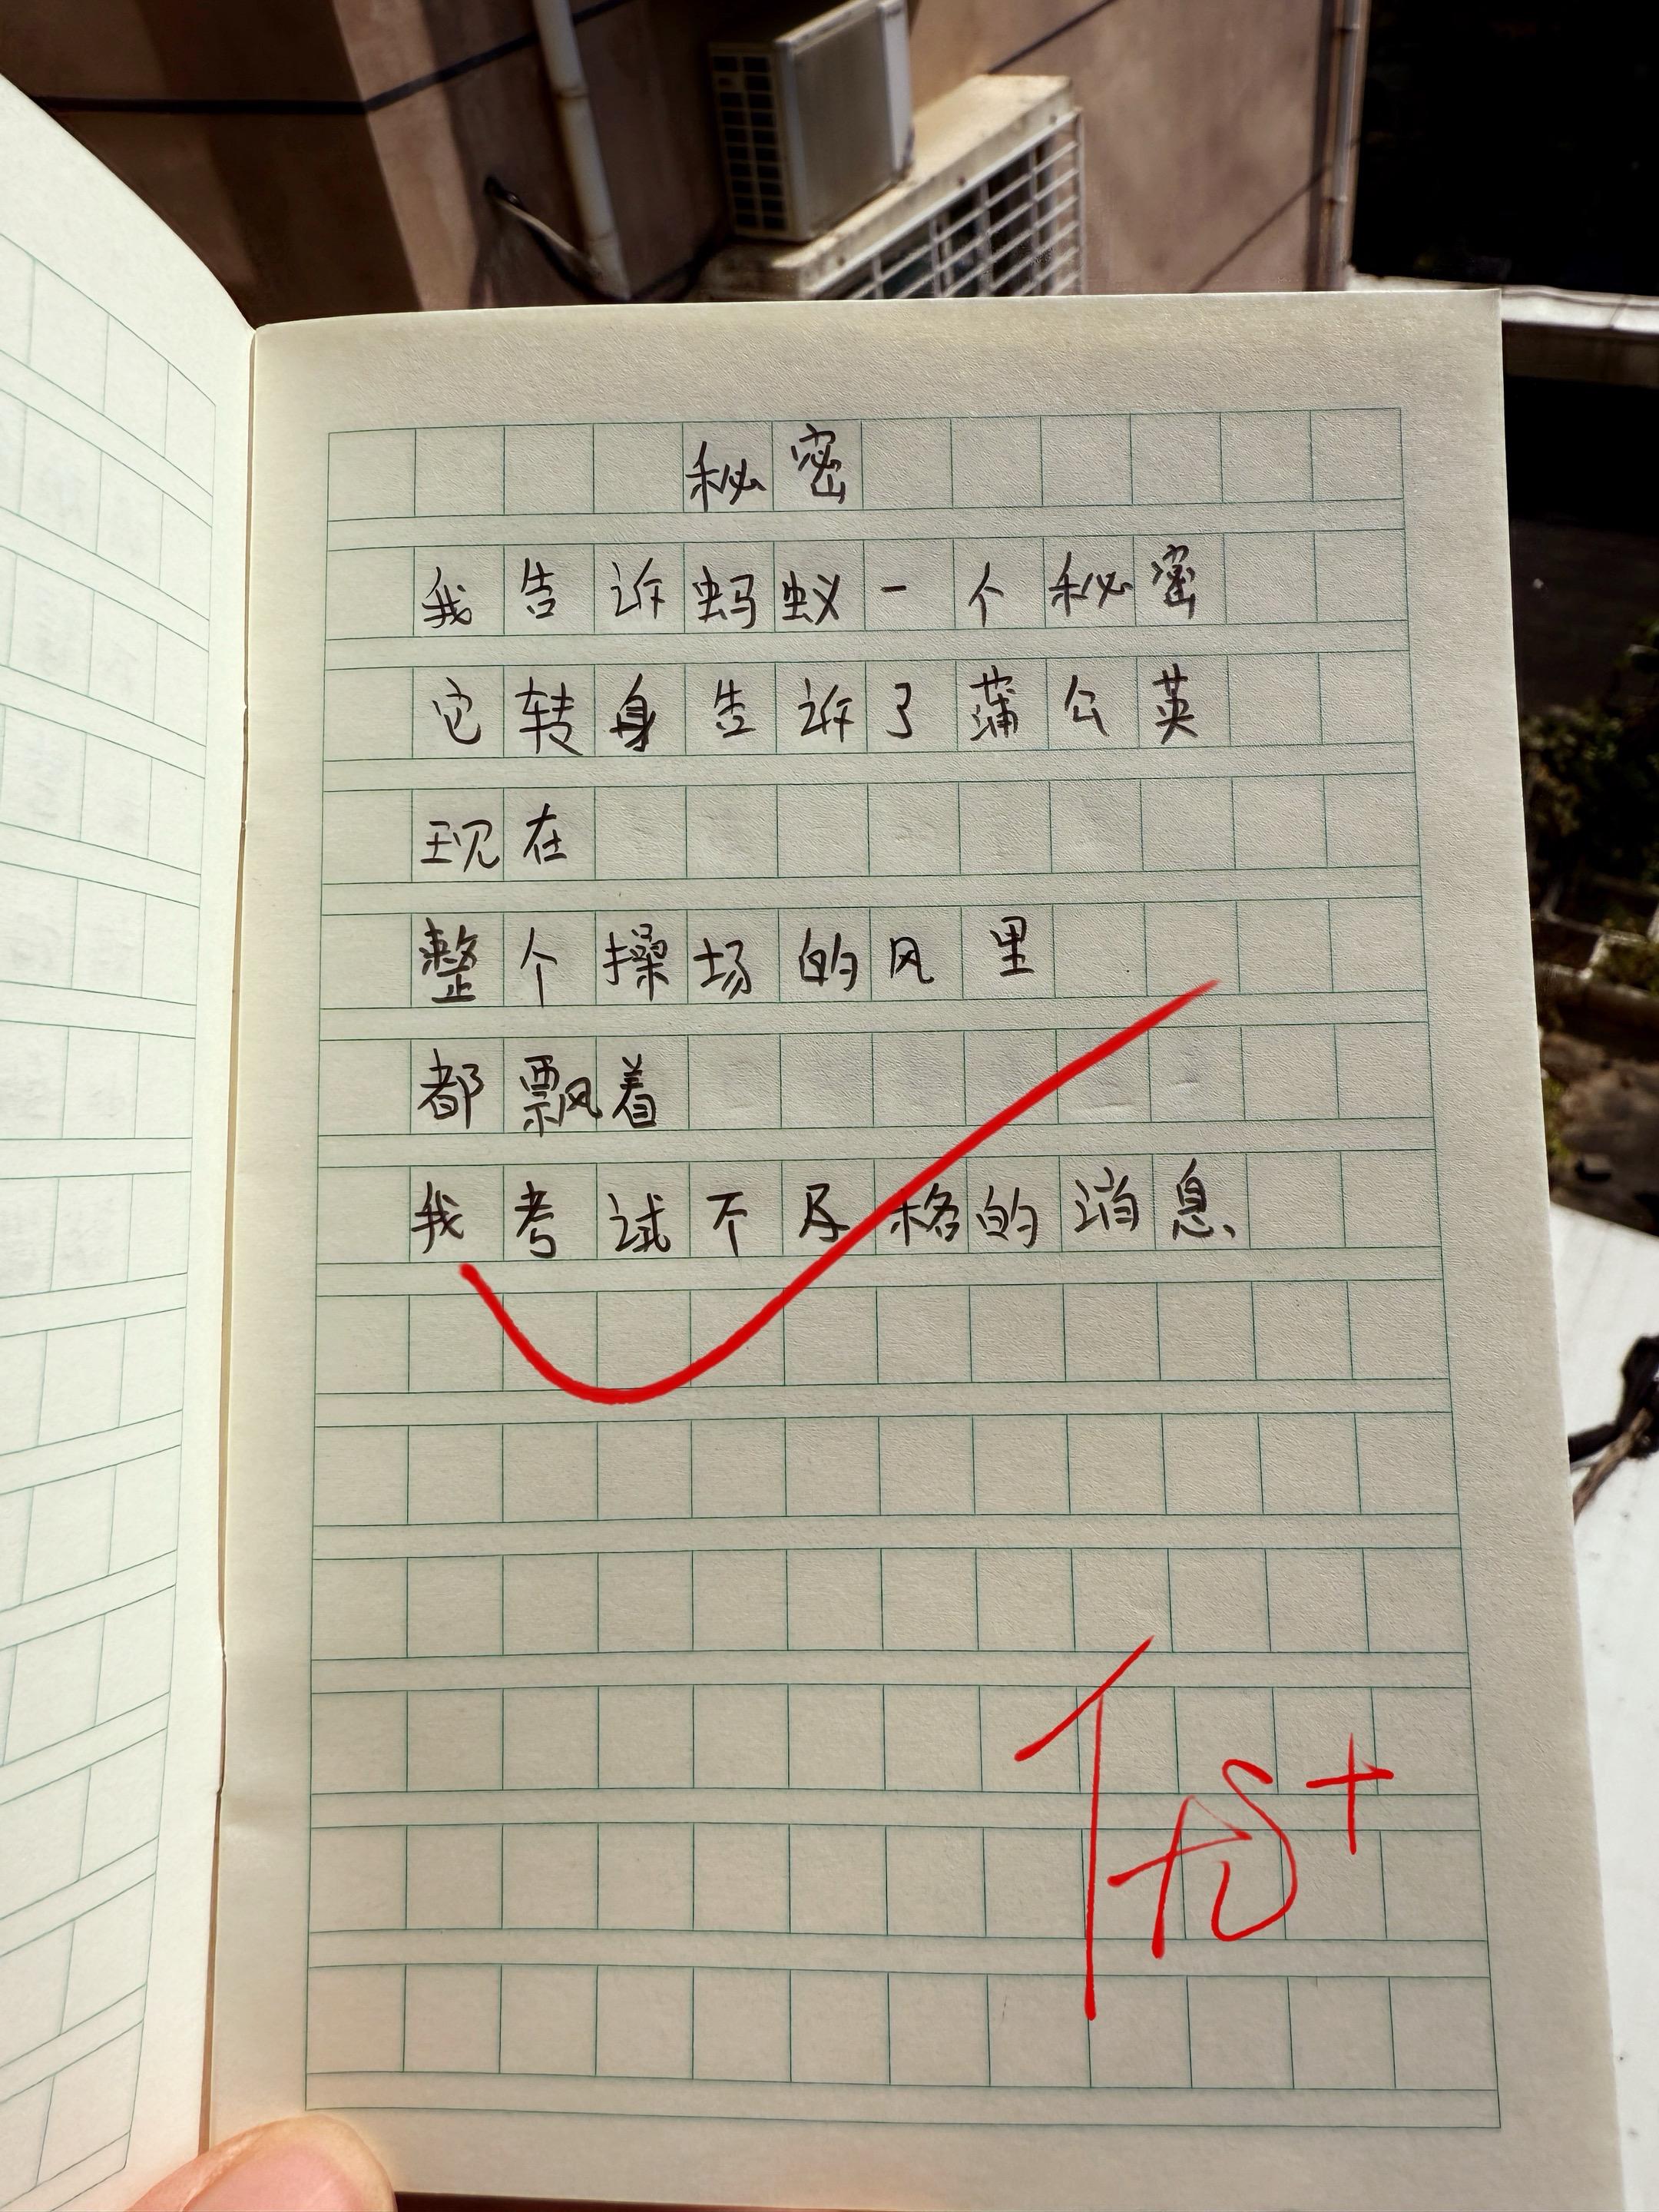 秘密
我告诉蚂蚁一个秘密
它转身告诉了蒲公英
现在
整个操场的风里
都飘着
我考试不及格的消息
优+